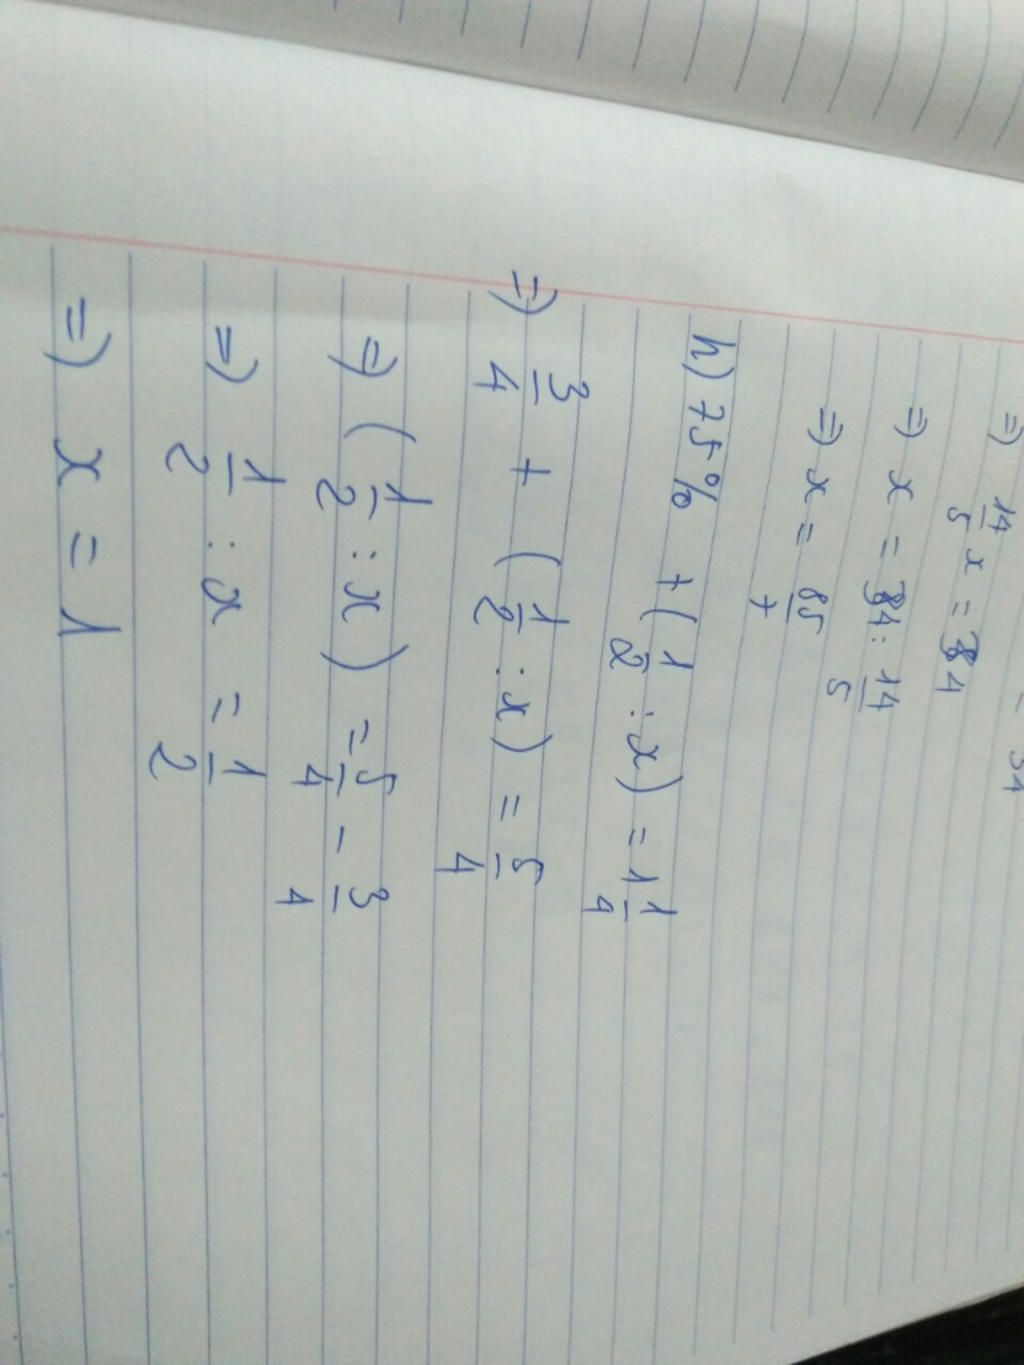 = 34
=) 14/5 x = 34
=) x = 34 : 14/5
=) x = 85/7
h) 75% + (1/2 : x) = 1 1/4
=) 3/4 + (1/2 : x) = 5/4
=) (1/2 : x) = 5/4 - 3/4
=) 1/2 : x = 1/2
=) x = 1